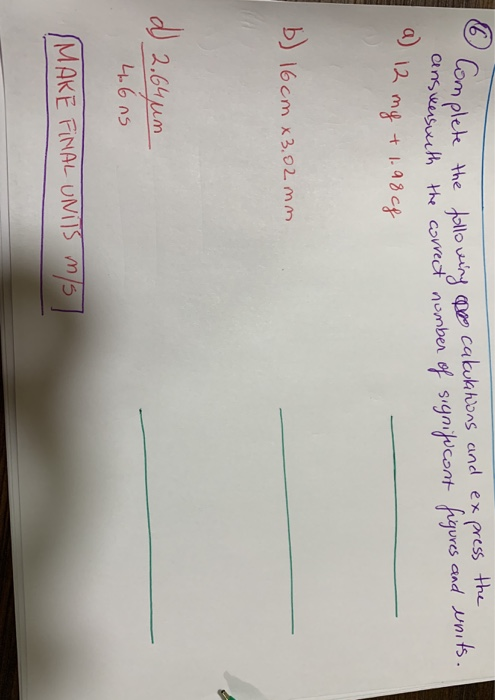 ⑥ Complete the following calculations and express the
answers with the correct number of significant figures and units.
a) 12 mg + 1.98cg
b) 16cm x 3.02 mm
d) 2.64 μm
4.6 ns
MAKE FINAL UNITS m/s